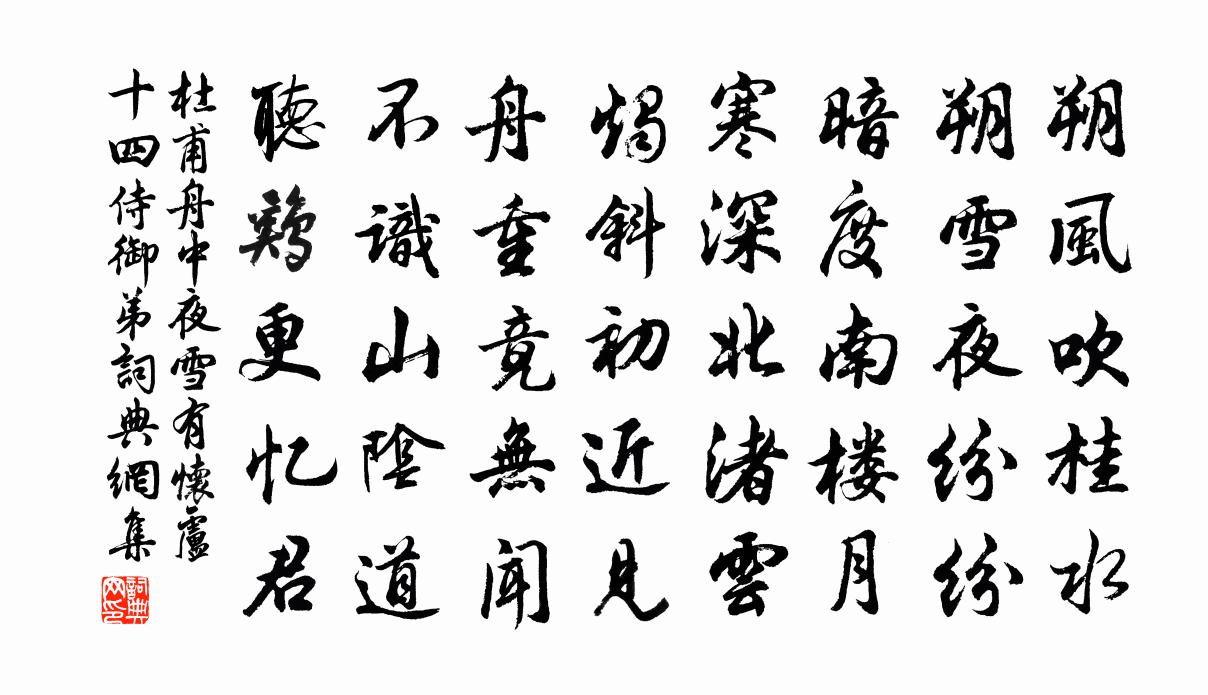 朔風吹桂水
朔雪夜紛紛
暗度南楼月
寒深北渚雲
燭斜初近見
舟重竟無聞
不識山陰道
聽鷄更忆君
杜甫舟中夜雪有懐盧
十四侍御弟詞典網集
詞典
网印